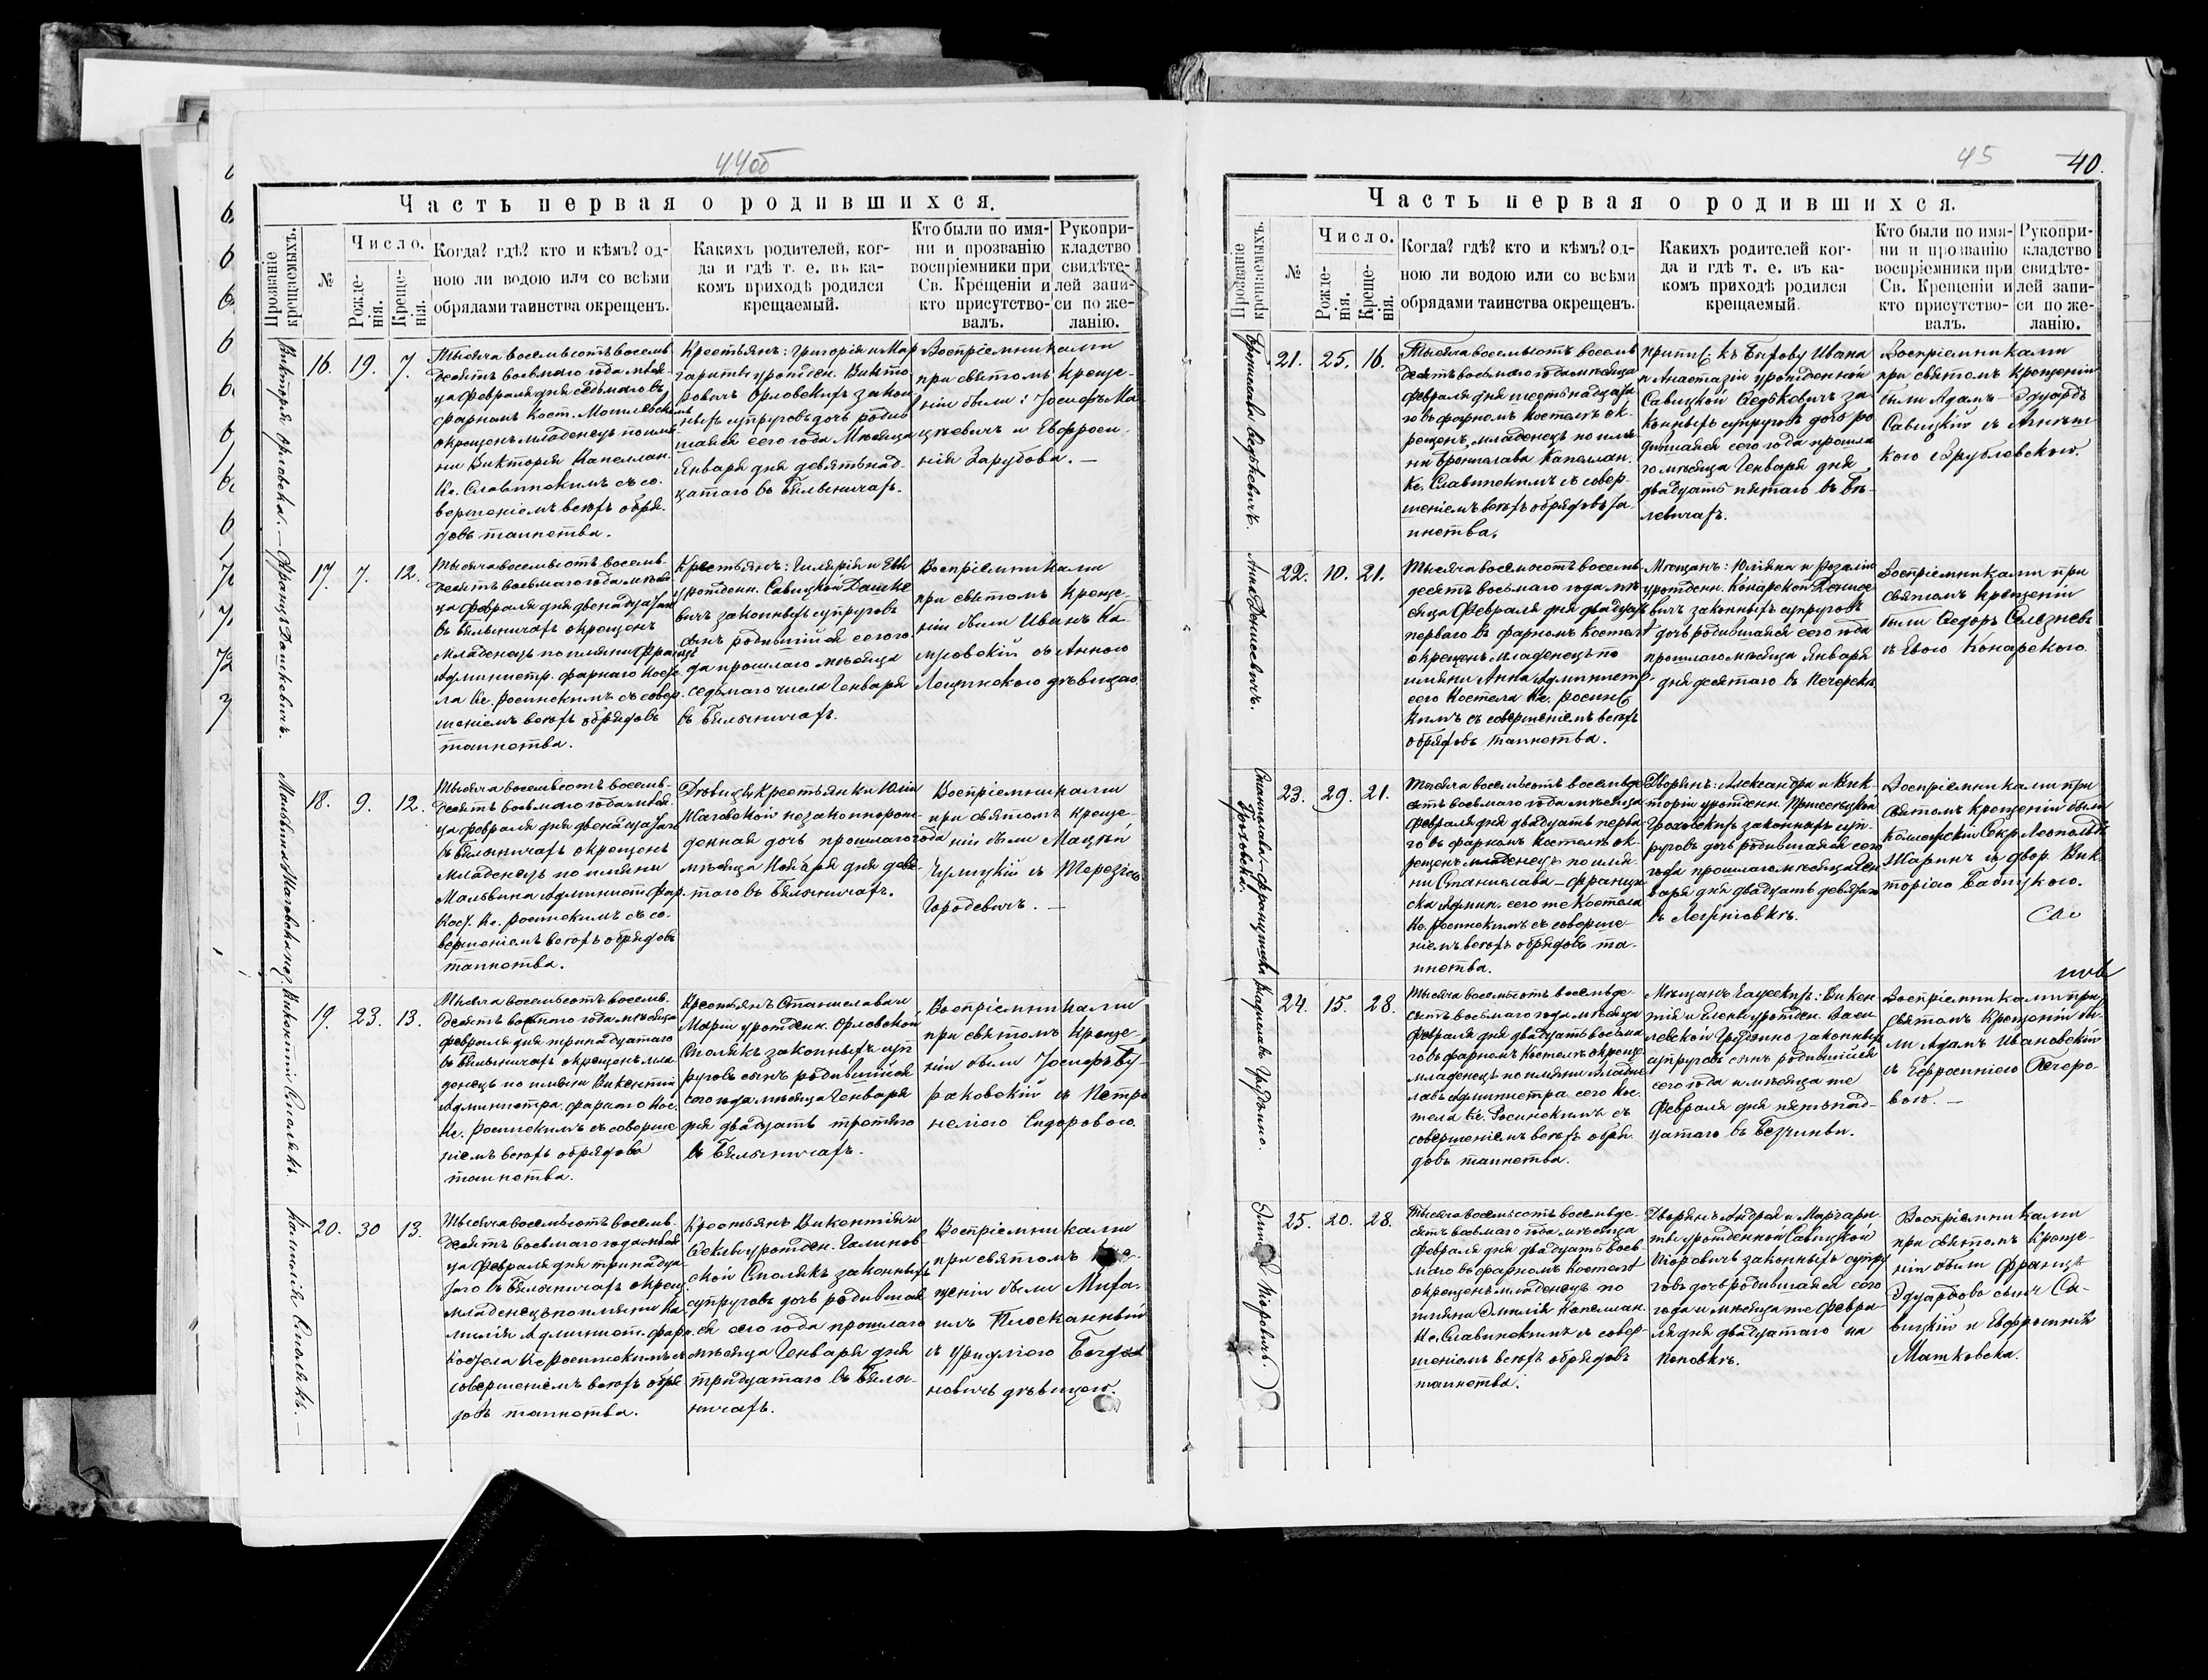 44об
Часть первая о родившихся.
Прозваніе крещаемыхъ.
№
Число.
Рожде-
нія.
Креще-
нія.
Когда? гдѣ? кто и кѣмъ? од-
ною ли водою или со всѣми
обрядами таинства окрещенъ.
Какихъ родителей, ког-
да и гдѣ т. е. въ ка-
комъ приходѣ родился
крещаемый.
Кто были по имя-
ни и прозванію
воспріемники при
Св. Крещеніи и
кто присутство-
валъ.
Рукопри-
кладство
свидѣте-
лей запи-
си по же-
ланію.
Викторія Орловска.
16. 19. 7.
Тысяча восемьсотъ восемь
десятъ восьмаго года мѣся-
ца Февраля дня седьмаго въ
фарномъ Кост. Могилевскомъ
окрещенъ младенецъ по имя-
ни Викторія Капеллан.
Кс. Славинскимъ съ со-
вершеніемъ всѣхъ обря-
довъ таинства.
Крестьянъ: Григорія и Мар
гариты урожден. Викто
ровичъ Орловскихъ закон
ныхъ супруговъ дочь родив
шаяся сего года Мѣсяца
Января дня девятьнад-
цатаго въ Бѣлыничахъ.
Воспріемниками
при святомъ Креще-
ніи были: Іосифъ Ма
цкевичъ и Евфроси-
нія Зарубова. —
Францъ Дашкевичъ.
17. 7. 12.
Тысяча восемьсотъ восемь
десятъ восьмаго года мѣся
ца Февраля дня двенадцатаго
въ Бѣлыничахъ окрещенъ
младенецъ по имяни Францъ
Администр. фарнаго Косте
ла Кс. Росинскимъ съ совер-
шеніемъ всѣхъ обрядовъ
таинства.
Крестьянъ: Гилярія и Евы
урожденн. Савицкой Дашке
вичъ законныхъ супруговъ
сынъ родившійся сего го
да прошлаго мѣсяца
седьмаго числа Генваря
въ Бѣлыничахъ.
Воспріемниками
при святомъ Креще-
ніи были Иванъ Ка
мровскій съ Анною
Лещинскою дѣвицею
Мальвина Маговская
18. 9. 12.
Тысяча восемьсотъ восемь-
десятъ восьмаго года мѣся
ца Февраля дня двенадцатаго
въ Бѣлыничахъ окрещенъ
младенецъ по имяни
Мальвина Администр. фар.
Кост. Кс. Росинскимъ съ со-
вершеніемъ всѣхъ обрядовъ
таинства.
Дѣвицы Крестьянки Юліи
Маговской незаконнорож-
денная дочь прошлаго года
мѣсяца Ноября дня девя-
таго въ Бѣлыничахъ.
Воспріемниками
при святомъ Креще-
ніи были Мацѣй
Чулицкій съ Терезіею
Городевичъ. —
Викентій Смолякъ.
19. 23. 13.
Тысяча восемьсотъ восемь-
десятъ восьмаго года мѣсяца
февраля дня тринадцатаго
въ Бѣлыничахъ окрещенъ мла
денецъ по имяни Викентій
Администра. фарнаго Кос.
Кс. Росинскимъ съ соверше
ніемъ всѣхъ обрядовъ
таинства.
Крестьянъ Станислава и
Маріи урожденн. Орловской
Смолякъ законныхъ суп
руговъ сынъ родившійся
сего года мѣсяца Генваря
дня двадцать третяго
въ Бѣлыничахъ.
Воспріемниками
при святомъ Креще
ніи были Іосифъ Бу-
раковскій съ Петро
нелію Сидоровою.
Камилія Смолякъ. —
20. 30 13.
Тысяча восемьсотъ восемь-
десятъ восьмаго года мѣся
ца Февраля дня тринадца-
таго въ Бѣлыничахъ окрещ.
младенецъ по имяни Ка
милія Администр. фарн.
Костела Кс Росинскимъ съ
совершеніемъ всѣхъ обря
довъ таинства.
Крестьянъ Викентія и
Феклы урожден. Галинов
ской Смолякъ законныхъ
супруговъ дочь родившая
ся сего года прошлаго
мѣсяца Генваря дня
тридцатаго въ Бѣлы-
ничахъ.
Воспріемниками
при святомъ Кре-
щеніи были Миха-
илъ Плосканный
съ Урсулою Богда
новичъ дѣвицею.
45
40.
Часть первая о родившихся.
Прозваніе крещаемыхъ.
№
Число.
Рожде-
нія.
Креще-
нія.
Когда? гдѣ? кто и кѣмъ? од-
ною ли водою или со всѣми
обрядами таинства окрещенъ.
Какихъ родителей ког-
да и гдѣ т. е. въ ка-
комъ приходѣ родился
крещаемый.
Кто были по имя-
ни и прозванію
воспріемники при
Св. Крещеніи и
кто присутство-
валъ.
Рукопри-
кладство
свидѣте-
лей запи-
си по же-
ланію.
Брониславы Федьковичъ.
21. 25. 16.
Тысяча восемьсотъ восемь
десятъ восьмаго года мѣсяца
февраля дня шестьнадцата
го въ фарномъ Костелѣ ок-
рещенъ младенецъ по имя-
ни Бронислава Капеллан.
Кс. Славинскимъ съ совер-
шеніемъ всѣхъ обрядовъ та-
инства.
Припис. къ Быхову Ивана
и Анастазіи урожденной
Савицкой Федьковичъ за-
конныхъ супруговъ дочь ро
дившаяся сего года прошла
го мѣсяца Генваря дня
двадцать пятаго въ Бѣ-
левичахъ.
Воспріемниками
при святомъ крещеніи
были Адамъ-Эдуардъ
Савицкій съ Агнѣш
кою Врублевскою.
Анна Денисевичъ.
22. 10. 21.
Тысяча восемьсотъ восемь
десятъ восьмаго года мѣ
сяца Февраля дня двадцать
перваго въ фарномъ Костелѣ
окрещенъ младенецъ по
имяни Анна Администр.
сего Костела Кс. Росинс
кимъ съ совершеніемъ всѣхъ
обрядовъ таинства.
Мѣщанъ: Юліяна и Розаліи
урожденн. Конарской Денисе
вичъ законныхъ супруговъ
дочь родившаяся сего года
прошлаго мѣсяца Января
дня десятаго въ Печерскѣ
Воспріемниками при
святомъ крещеніи
были Федоръ Селезневъ
съ Евою Конарскою.
Станислава-Францишка Гроховска.
23. 29. 21.
Тысяча восемьсотъ восемьде
сятъ восьмаго года мѣсяца
Февраля дня двадцать перва
го въ фарномъ Костелѣ ок-
рещенъ младенецъ по имя-
ни Станислава-Францишка
Админ. сего же Костела
Кс. Росинскимъ съ соверше
ніемъ всѣхъ обрядовъ та-
инства.
Дворянъ: Александра и Вик-
торіи урожденн.
Гроховскихъ законныхъ суп-
руговъ дочь родившаяся сего
года прошлаго мѣсяца Ген
варя дня двадцать девятаго
въ
Воспріемниками при
святомъ крещеніи были
Секр. Леопольдъ
Шаринъ съ двор. Вик-
торіею Бабицкою.
Владиславъ Грудзино.
24. 15. 28.
Тысяча восемьсотъ восемьде-
сятъ восьмаго года мѣсяца
Февраля дня двадцать восьма
го въ фарномъ Костелѣ окреще.
младенецъ по имяни Влади
славъ Администра. сего Кос-
тела Кс. Росинскимъ съ
совершеніемъ всѣхъ обря
довъ таинства.
Мѣщанъ Викен
тія и Елены урожден. Васи
левской Грудзино законныхъ
супруговъ сынъ родившійся
сего года и мѣсяца же
Февраля дня пятьнад-
цатаго въ
Воспріемниками при
святомъ Крещеніи бы-
ли Адамъ Ивановскій
съ Ефросиніею Печеро-
вою. —
Эмилія Піоровичъ
25. 20. 28.
Тысяча восемьсотъ восемьде
сятъ восьмаго года мѣсяца
февраля дня двадцать вось-
маго въ фарномъ Костелѣ
окрещенъ младенецъ по
имяни Эмилія Капеллан.
Кс. Славинскимъ съ совер-
шеніемъ всѣхъ обрядовъ
таинства.
Дворянъ Андрея и Маргари
ты урожденной Савицкой
Піоровичъ законныхъ супру
говъ дочь родившаяся сего
года и мѣсяца же Февра
ля дня двадцатаго на
Поповкѣ.
Воспріемниками
при святомъ Креще-
ніи были Францъ
Эдуардовъ сынъ Са-
вицкій и Евфросинія
Матковска.